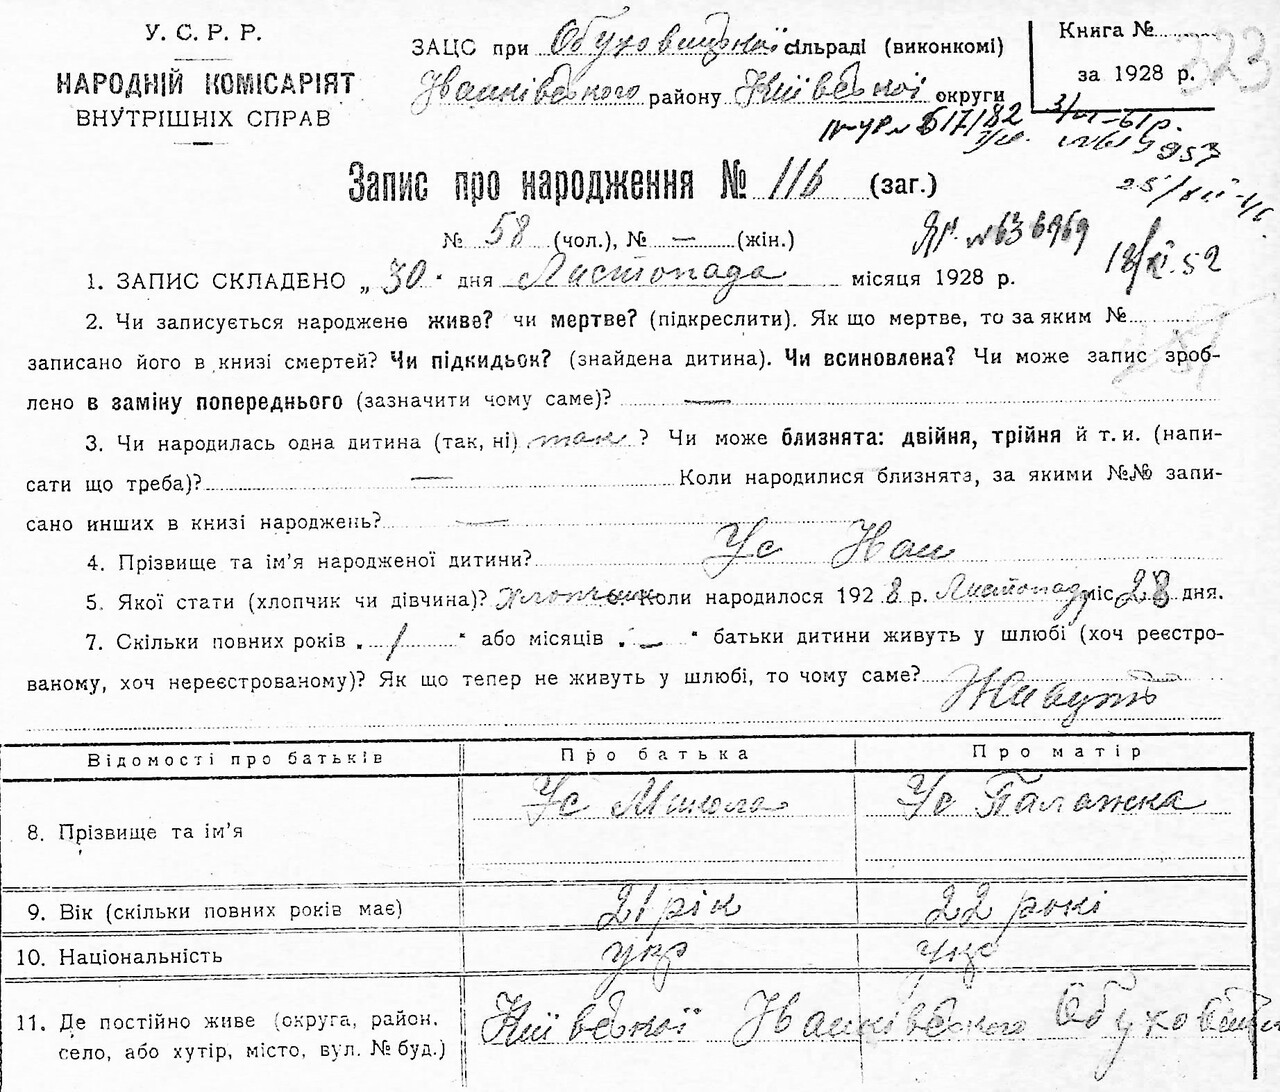 У. С. Р. Р.
НАРОДНІЙ КОМІСАРІЯТ
ВНУТРІШНІХ СПРАВ
ЗАЦС при Обуховицької сільраді (виконкомі)
Іванківського району Київської округи
Книга №
за 1928 р.
223
Запис про народження № 116 (заг.)
№ 58 (чол.), № — (жін.)
18/XI.52
1. ЗАПИС СКЛАДЕНО „ 30 " дня Листопада місяця 1928 р.
2. Чи записується народжене живе? чи мертве? (підкреслити). Як що мертве, то за яким №
записано його в книзі смертей? Чи підкидьок? (знайдена дитина). Чи всиновлена? Чи може запис зроб-
лено в заміну попереднього (зазначити чому саме)? —
3. Чи народилась одна дитина (так, ні) так ? Чи може близнята: двійня, трійня й т. и. (напи-
сати що треба)? — Коли народилися близнята, за якими №№ запи-
сано инших в книзі народжень? —
4. Прізвище та ім'я народженої дитини? Ус Іван
5. Якої статі (хлопчик чи дівчина)? хлопчик Коли народилося 192 8 р. Листопад міс 28 дня.
7. Скільки повних років „ 1 " або місяців „ — " батьки дитини живуть у шлюбі (хоч реєстро-
ваному, хоч нереєстрованому)? Як що тепер не живуть у шлюбі, то чому саме? Живуть
Відомості про батьків Про батька Про матір
8. Прізвище та ім'я Ус Микола Ус Палажка
9. Вік (скільки повних років має) 21 рік 22 рокі
10. Національність укр укр
11. Де постійно живе (округа, район, Київської Іванківського
село, або хутір, місто, вул. № буд.)